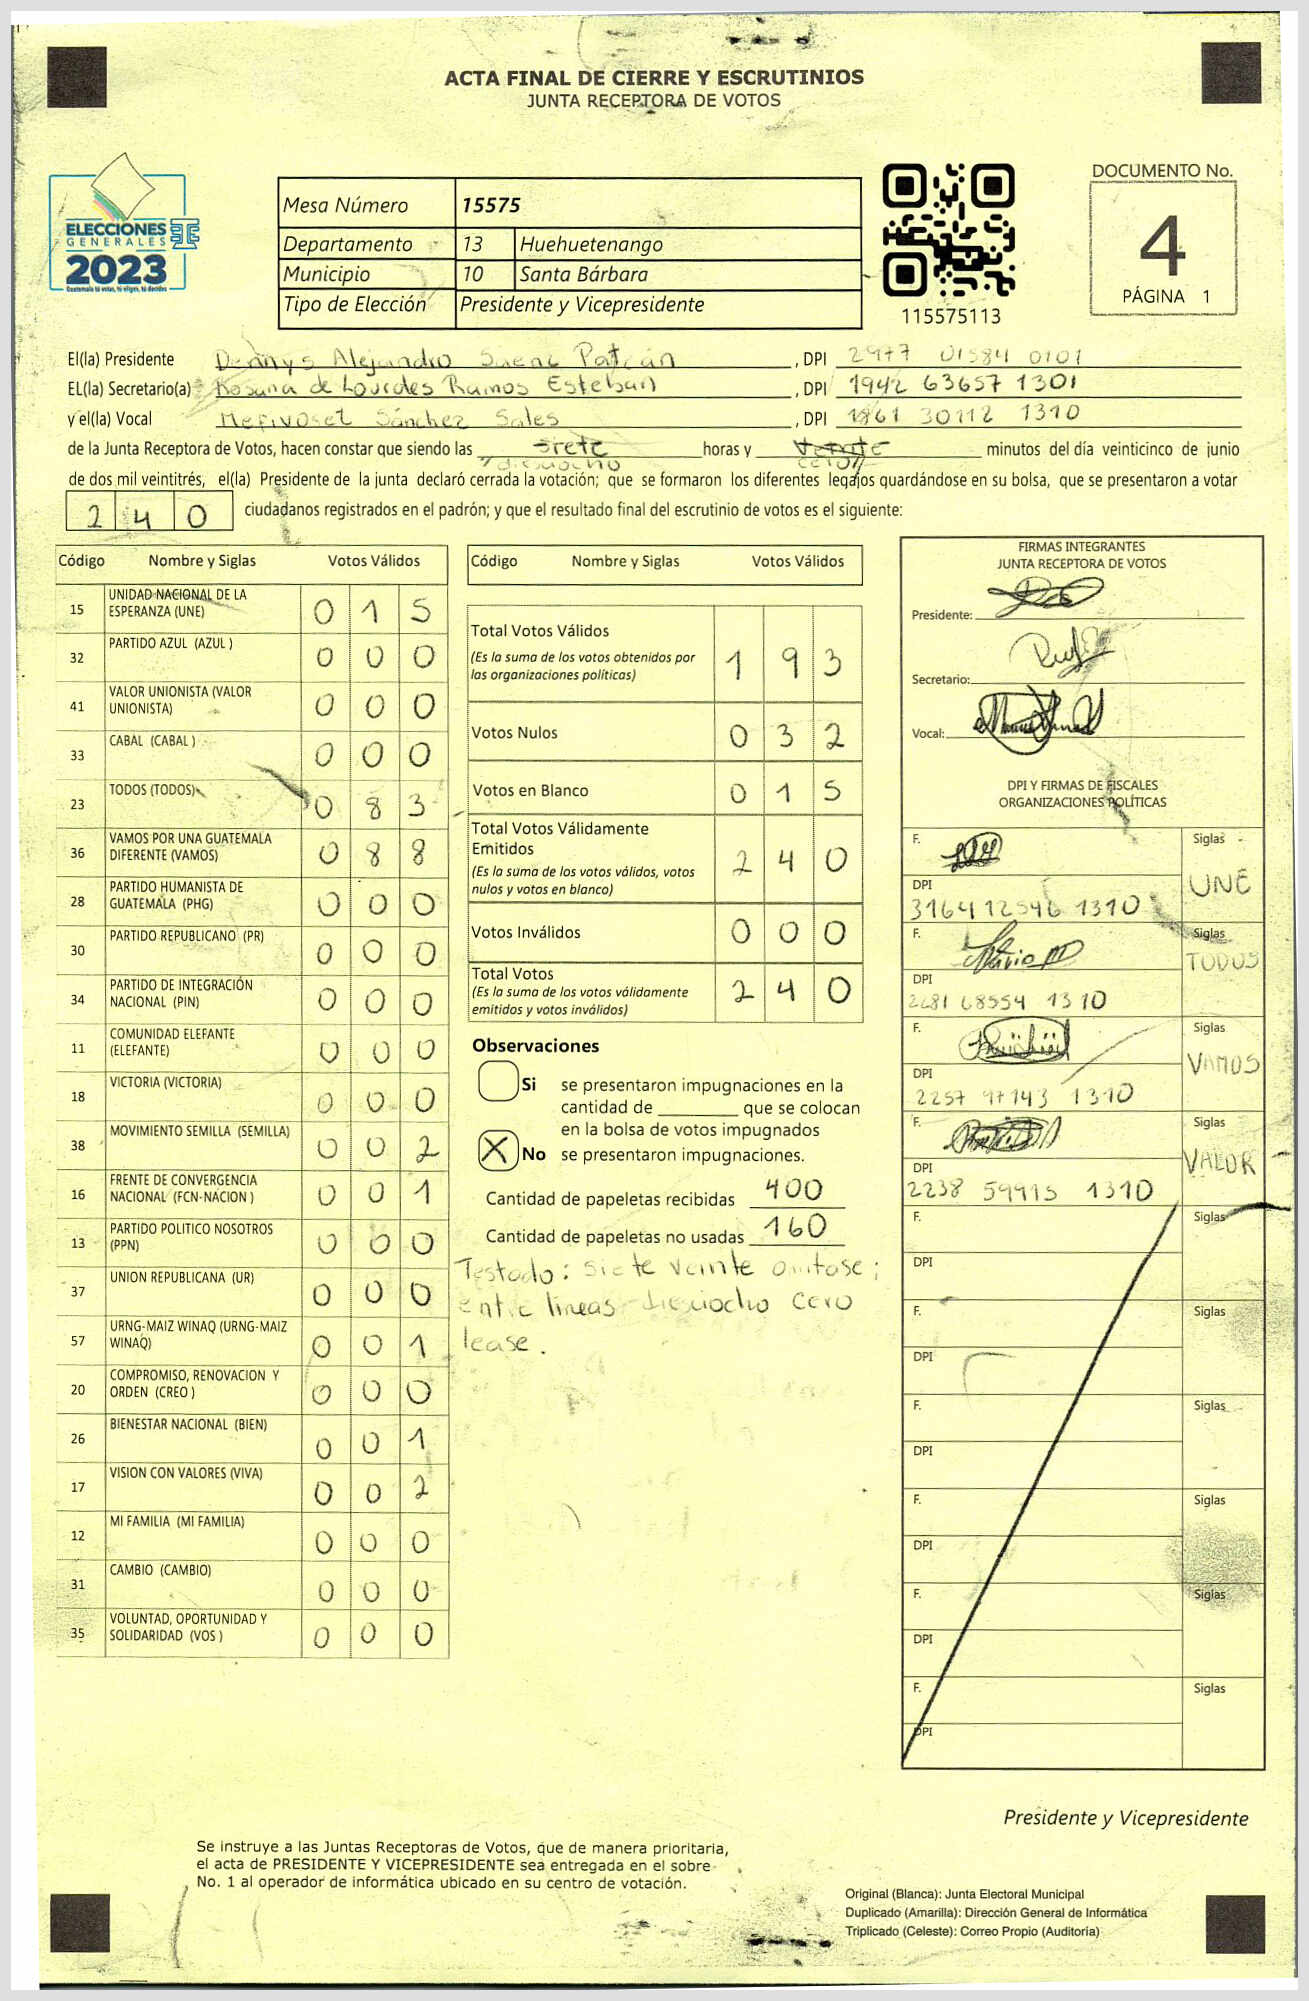 ACTA FINAL DE CIERRE Y ESCRUTINIOS
JUNTA RECEPTORA DE VOTOS
ELECCIONES
GENERALES
2023
Guatemala tú votas, tú eliges, tú decides
Mesa Número 15575
Departamento 13 Huehuetenango
Municipio 10 Santa Bárbara
Tipo de Elección Presidente y Vicepresidente
115575113
DOCUMENTO No.
4
PÁGINA 1
El(la) Presidente Dennys Alejandro Saenz Patzán , DPI 2977 01584 0101
EL(la) Secretario(a) Rosana de Lourdes Ramos Esteban , DPI 1942 63657 1301
y el(la) Vocal Mefivoset Sánchez Sales , DPI 1861 30112 1310
de la Junta Receptora de Votos, hacen constar que siendo las siete horas y veinte minutos del día veinticinco de junio
dieciocho cero
de dos mil veintitrés, el(la) Presidente de la junta declaró cerrada la votación; que se formaron los diferentes legajos guardándose en su bolsa, que se presentaron a votar
240 ciudadanos registrados en el padrón; y que el resultado final del escrutinio de votos es el siguiente:
Código Nombre y Siglas Votos Válidos
15 UNIDAD NACIONAL DE LA ESPERANZA (UNE) 0 1 5
32 PARTIDO AZUL (AZUL ) 0 0 0
41 VALOR UNIONISTA (VALOR UNIONISTA) 0 0 0
33 CABAL (CABAL ) 0 0 0
23 TODOS (TODOS) 0 8 3
36 VAMOS POR UNA GUATEMALA DIFERENTE (VAMOS) 0 8 8
28 PARTIDO HUMANISTA DE GUATEMALA (PHG) 0 0 0
30 PARTIDO REPUBLICANO (PR) 0 0 0
34 PARTIDO DE INTEGRACIÓN NACIONAL (PIN) 0 0 0
11 COMUNIDAD ELEFANTE (ELEFANTE) 0 0 0
18 VICTORIA (VICTORIA) 0 0 0
38 MOVIMIENTO SEMILLA (SEMILLA) 0 0 2
16 FRENTE DE CONVERGENCIA NACIONAL (FCN-NACION ) 0 0 1
13 PARTIDO POLITICO NOSOTROS (PPN) 0 0 0
37 UNION REPUBLICANA (UR) 0 0 0
57 URNG-MAIZ WINAQ (URNG-MAIZ WINAQ) 0 0 1
20 COMPROMISO, RENOVACION Y ORDEN (CREO ) 0 0 0
26 BIENESTAR NACIONAL (BIEN) 0 0 1
17 VISION CON VALORES (VIVA) 0 0 2
12 MI FAMILIA (MI FAMILIA) 0 0 0
31 CAMBIO (CAMBIO) 0 0 0
35 VOLUNTAD, OPORTUNIDAD Y SOLIDARIDAD (VOS ) 0 0 0
Código Nombre y Siglas Votos Válidos
Total Votos Válidos
(Es la suma de los votos obtenidos por las organizaciones políticas) 1 9 3
Votos Nulos 0 3 2
Votos en Blanco 0 1 5
Total Votos Válidamente Emitidos
(Es la suma de los votos válidos, votos nulos y votos en blanco) 2 4 0
Votos Inválidos 0 0 0
Total Votos
(Es la suma de los votos válidamente emitidos y votos inválidos) 2 4 0
Observaciones
Si se presentaron impugnaciones en la
cantidad de ________ que se colocan
en la bolsa de votos impugnados
X No se presentaron impugnaciones.
Cantidad de papeletas recibidas 400
Cantidad de papeletas no usadas 160
Testado: siete veinte omitase;
entre líneas dieciocho cero
lease.
FIRMAS INTEGRANTES
JUNTA RECEPTORA DE VOTOS
Presidente:
Secretario:
Vocal:
DPI Y FIRMAS DE FISCALES
ORGANIZACIONES POLÍTICAS
F. Siglas
UNE
DPI
3164 12546 1310
F. Siglas
TODOS
DPI
2681 68554 1310
F. Siglas
VAMOS
DPI
2257 97143 1310
F. Siglas
VALOR
DPI
2238 59915 1310
F. Siglas
DPI
F. Siglas
DPI
F. Siglas
DPI
F. Siglas
DPI
F. Siglas
DPI
F. Siglas
DPI
Presidente y Vicepresidente
Se instruye a las Juntas Receptoras de Votos, que de manera prioritaria,
el acta de PRESIDENTE Y VICEPRESIDENTE sea entregada en el sobre
No. 1 al operador de informática ubicado en su centro de votación.
Original (Blanca): Junta Electoral Municipal
Duplicado (Amarilla): Dirección General de Informática
Triplicado (Celeste): Correo Propio (Auditoría)